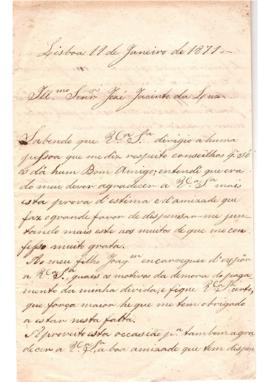 Lisboa 11 de Janeiro de 1871 —
Ill.mo Senr. José Jacinto da
Sabendo que V.ca S.ria dirigio a huma
pessoa que me diz respeito conselhos q. só
os dá hum Bom Amigo, entendi que era
do meu dever agradecer a V.ca S.ria mais
esta prova d'estima e d'amizade que
faz o grande favor de dispensar-me jun
tando mais este aos muitos de que me con
fesso muito grata.
Ao meu filho encarreguei d'expôr
a V.ca S.ria quaes os motivos da demora do paga
mento da minha divida, e fique V.ca S.ria certo,
que força maior he que me tem obrigado
a estar nesta falta.
Aproveito esta occasião p.a tambem agra
decer a V.ca S.ria a boa amizade que tem dispen